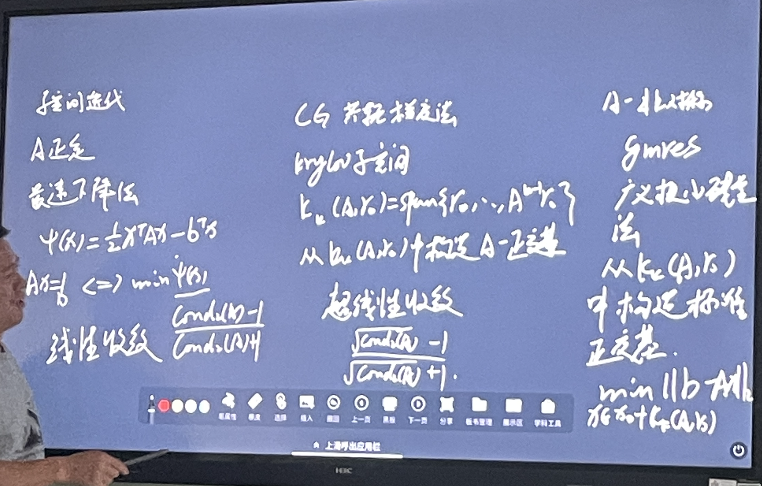 子空间迭代
A正定
最速下降法
φ(x)=½xᵀAx-bᵀx
Ax=b <=> min φ(x)
线性收敛 (Cond₂(A)-1)/(Cond₂(A)+1)
CG 共轭梯度法
krylov子空间
Kₖ(A,r₀)=span{r₀,...,Aᵏ⁻¹r₀}
从Kₖ(A,r₀)中构造A-正交基
超线性收敛
(√Cond₂(A) -1)/(√Cond₂(A) +1).
A-非对称
gmres
广义极小残量
法
从Kₖ(A,r₀)
中构造标准
正交基.
min ||b-Ax||₂
x∈x₀+Kₖ(A,r₀)
选择
插入
撤回
上一页
下一页
分享
板书管理
展示区
学科工具
上滑呼出应用栏
H3C